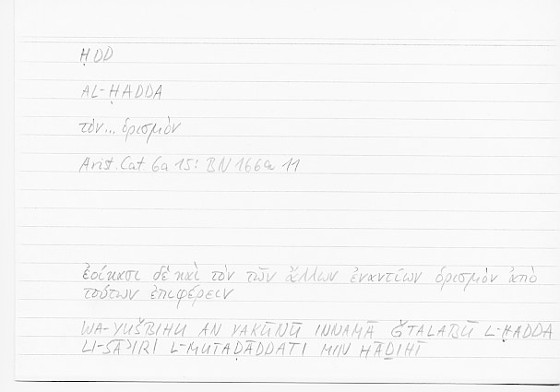 ḤDD
AL-ḤADDA
τὸν... ὁρισμὸν
Arist. Cat 6a 15: BN 166a 11
ἐοίκασι δὲ καὶ τὸν τῶν ἄλλων ἐναντίων ὁρισμὸν ἀπὸ
τούτων ἐπιφέρειν
WA-YUŠBIHU AN YAKŪNŪ INNAMĀ ǦTALABŪ L-ḤADDA
LI-SĀʾIRI L-MUTAḌĀDDATI MIN HĀḎIHĪ